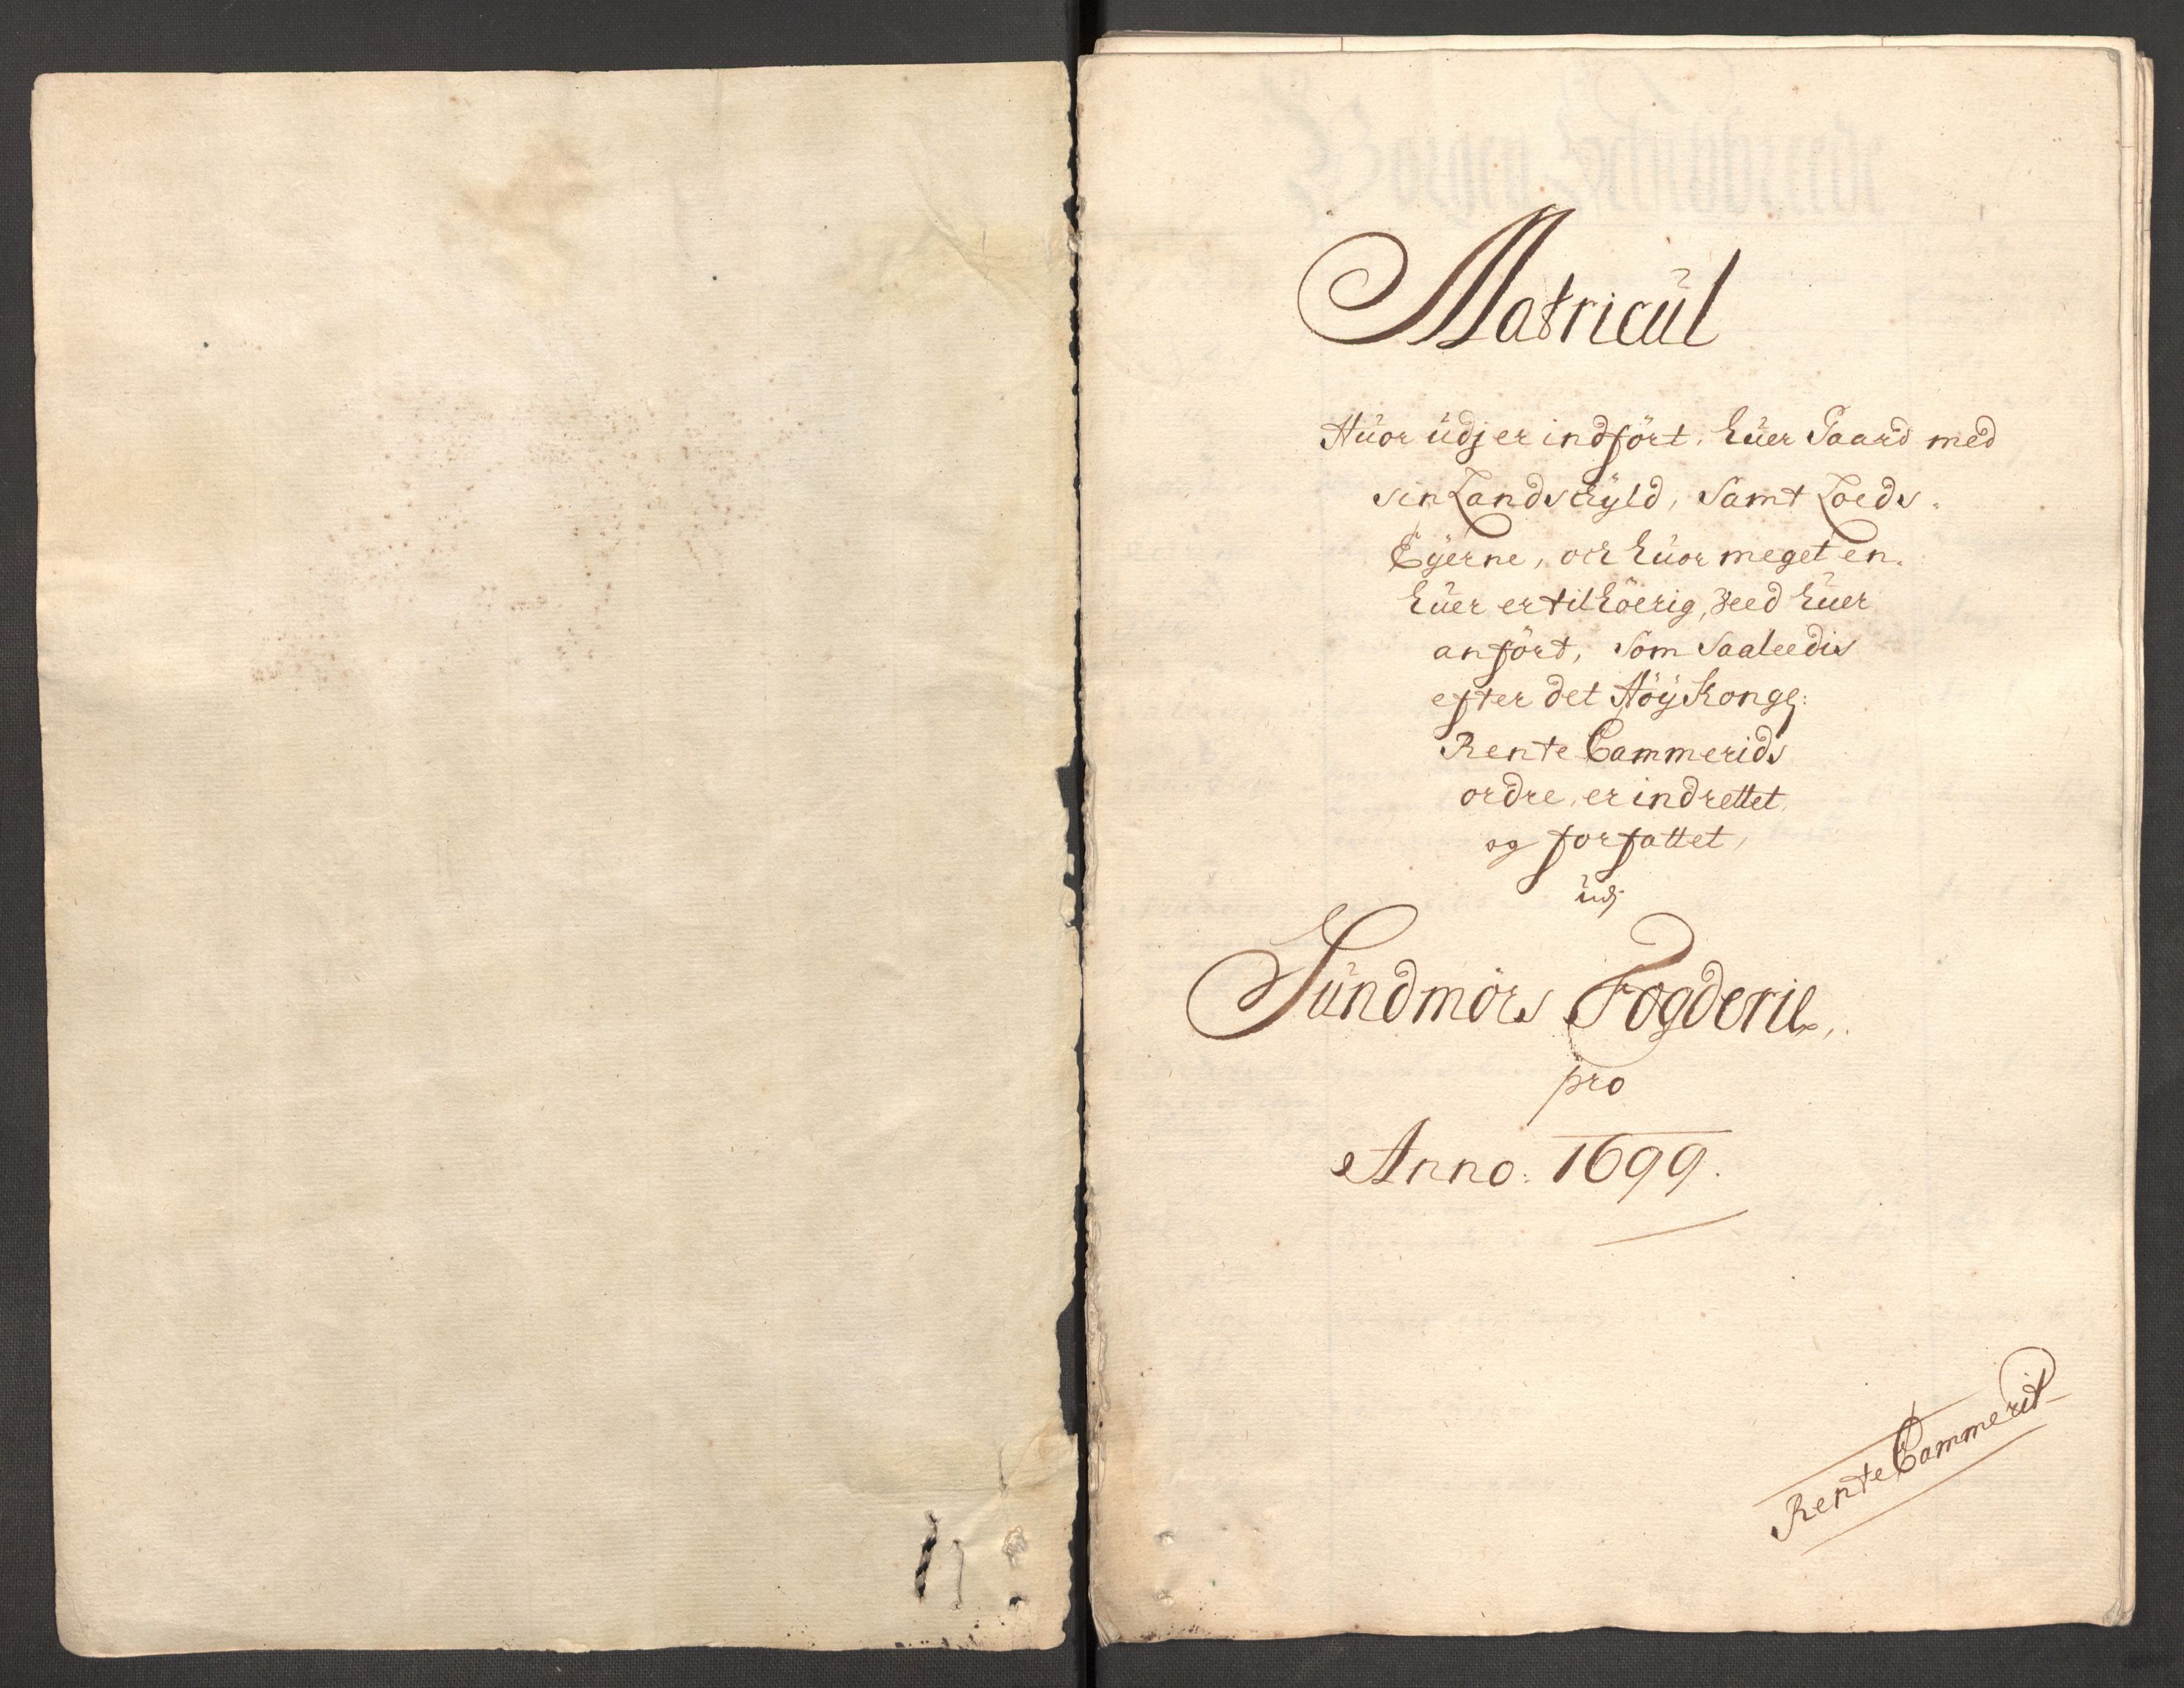 Matricul
Huor udj er indført, huer Gaard med
sin Landschyld, Samt Lods-
Eyerne, och huor meget en-
huer er tilhöerig, veed huer
anfört, som Saaleedis
efter det Höy Kongl:
Rente Cammerids
ordre, er indrettet,
og forfattet,
udj
Sundmörs Fogderie,
pro
Anno: 1699.
Rente Cammerit